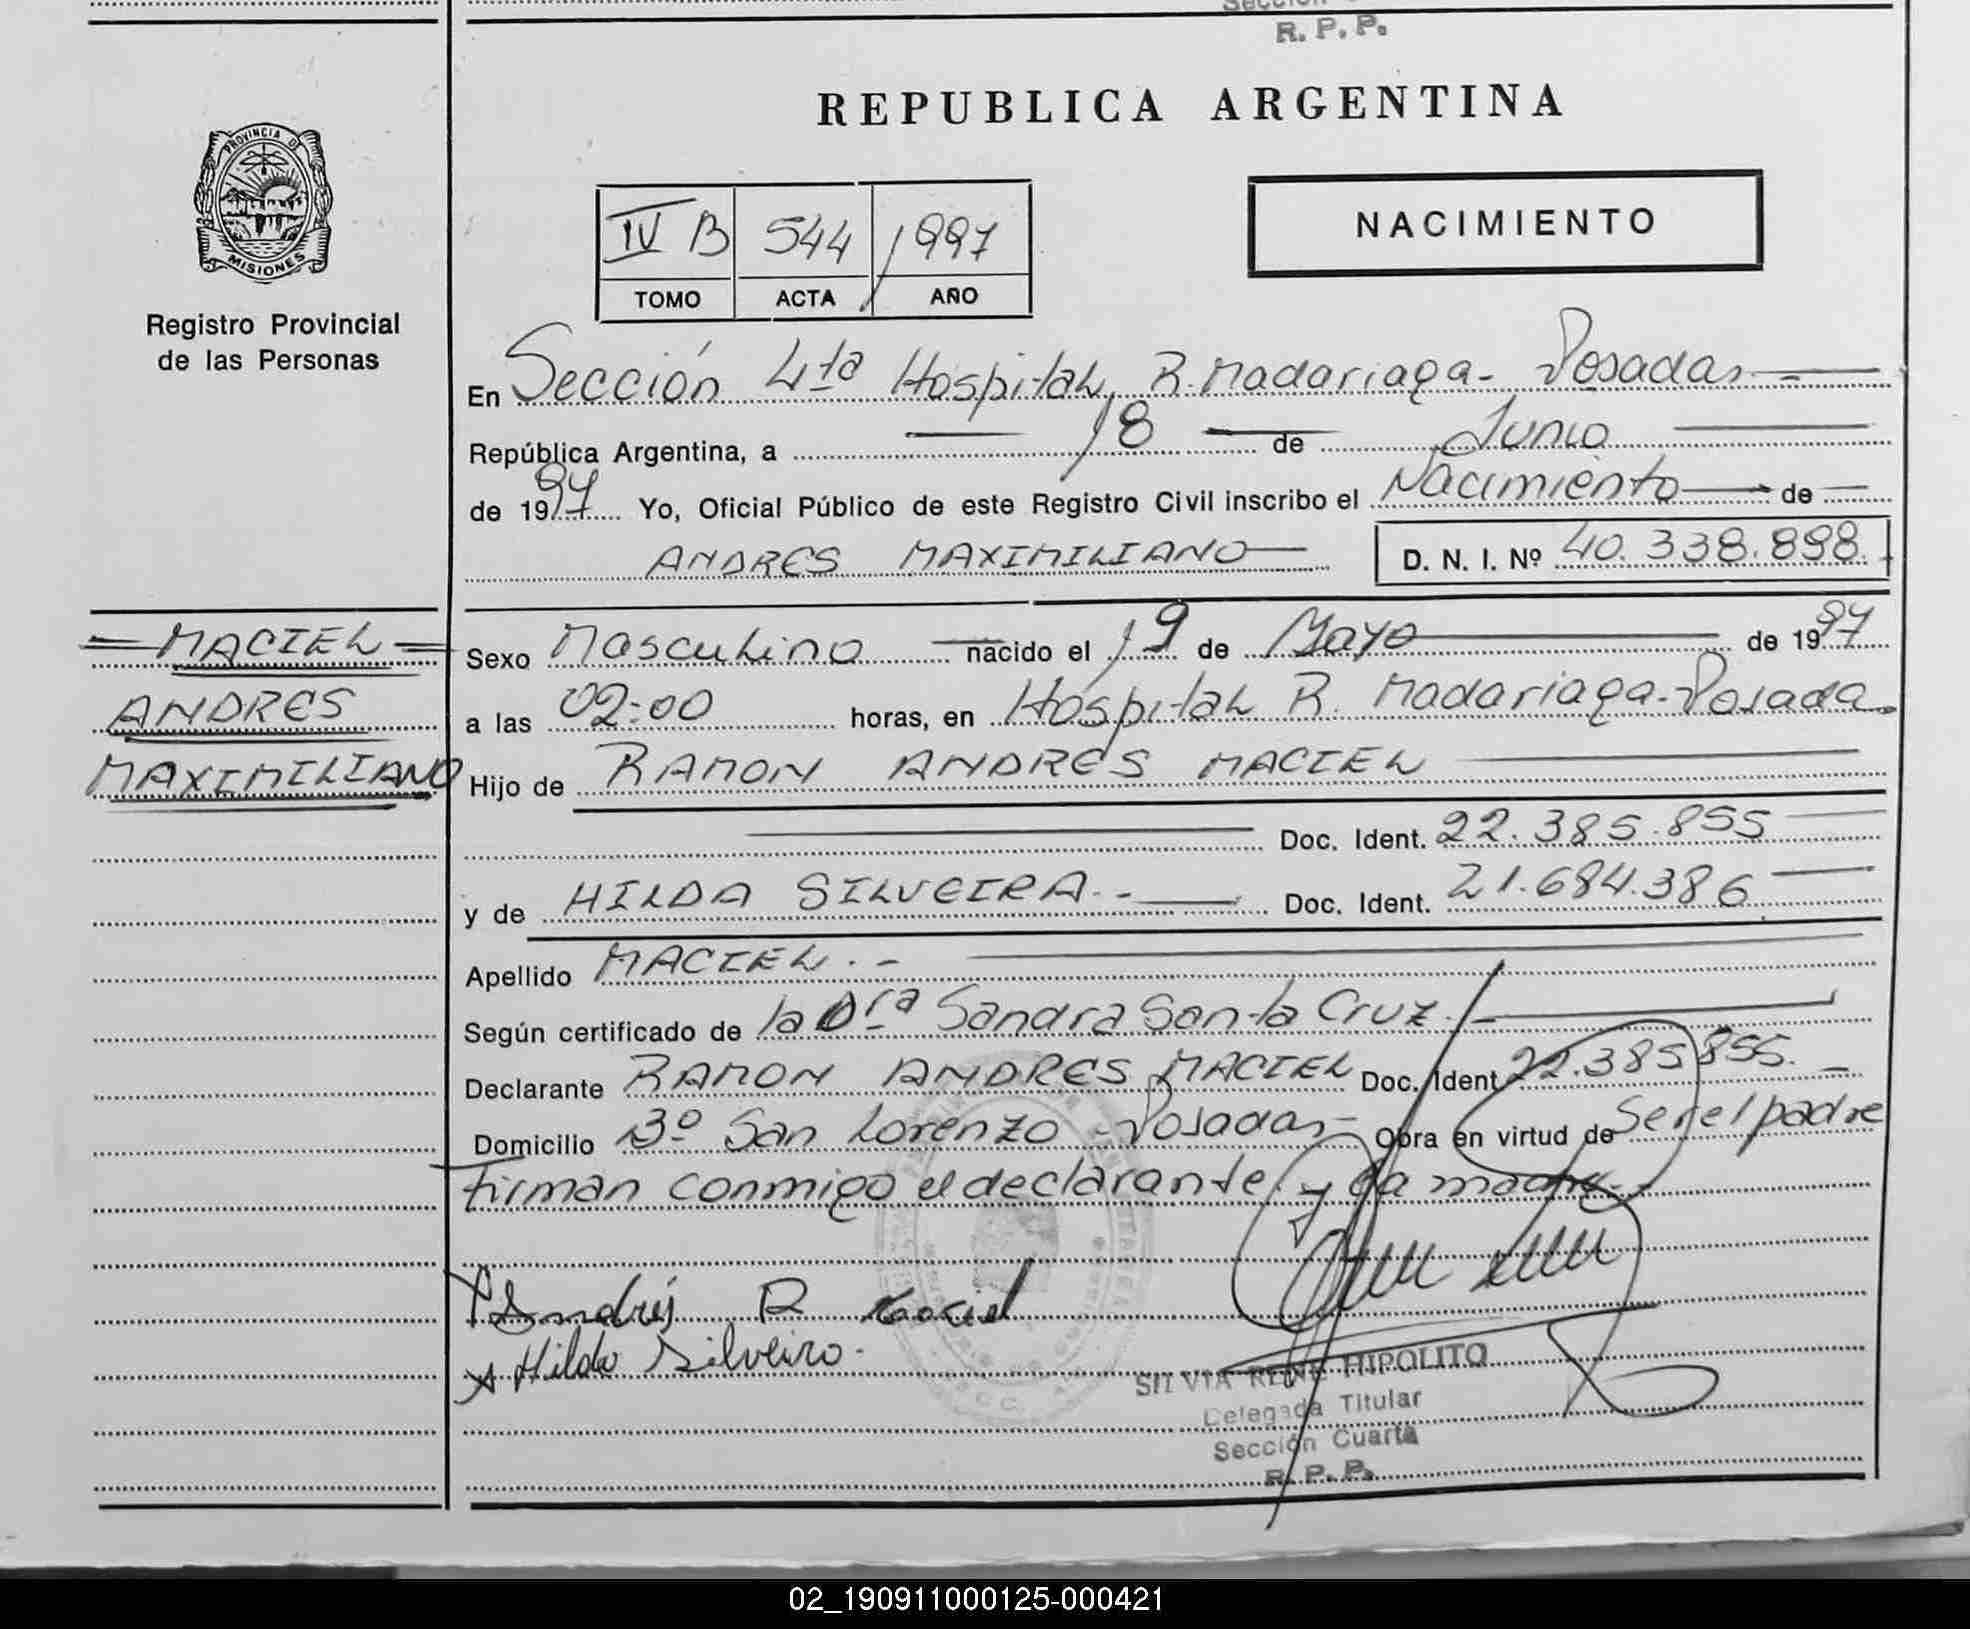 R. P. P.
REPUBLICA ARGENTINA
PROVINCIA DE
MISIONES
Registro Provincial
de las Personas
IV B 544 1997
TOMO ACTA AÑO
NACIMIENTO
En Sección 4ta Hospital R. Madariaga - Posadas
República Argentina, a 18 de Junio
de 1997 Yo, Oficial Público de este Registro Civil inscribo el Nacimiento de
ANDRES MAXIMILIANO D. N. I. Nº 40.338.898.
MACIEL
ANDRES
MAXIMILIANO
Sexo Masculino nacido el 19 de Mayo de 1997
a las 02:00 horas, en Hospital R. Madariaga - Posadas
Hijo de RAMON ANDRES MACIEL
Doc. Ident. 22.385.855
y de HILDA SILVEIRA.- Doc. Ident. 21.684.386
Apellido MACIEL.-
Según certificado de la Dra Sandra Santa Cruz.-
Declarante RAMON ANDRES MACIEL Doc. Ident 22.385.855.
Domicilio Bº San Lorenzo - Posadas - Obra en virtud de Ser el padre
firman conmigo el declarante y la madre.-
Andrés R Maciel
x Hilda Silveira.
SILVIA RENE HIPOLITO
Delegada Titular
Sección Cuarta
R. P. P.
02_190911000125-000421